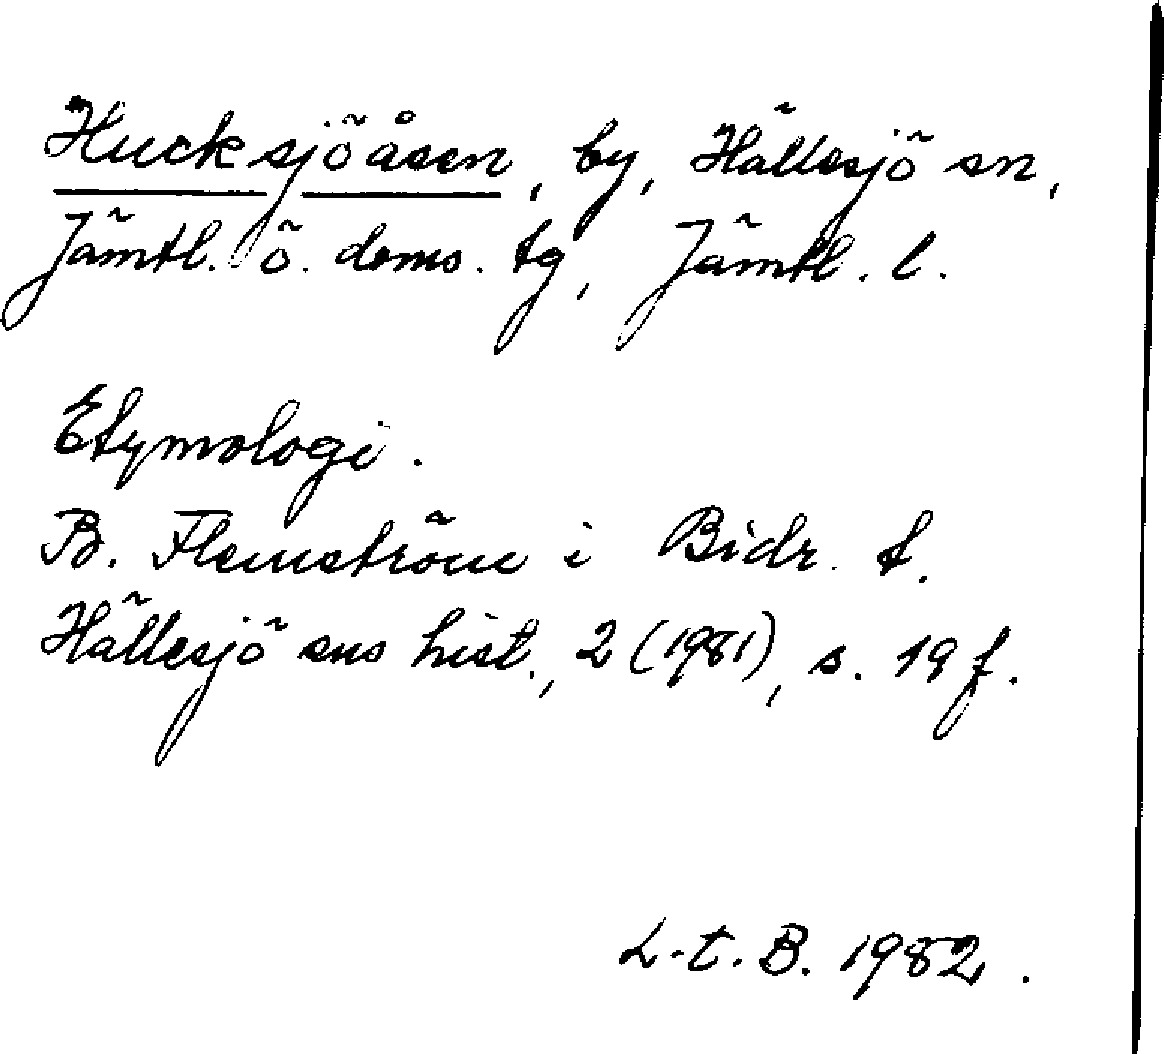 Hucksjöåsen, by, Hällesjö sn,
Jämtl. ö. doms. tg, Jämtl. l.
Etymologi.
B. Flemström i Bidr. t.
Hällesjö sns hist., 2 (1981), s. 19 f.
L.t.B. 1982.